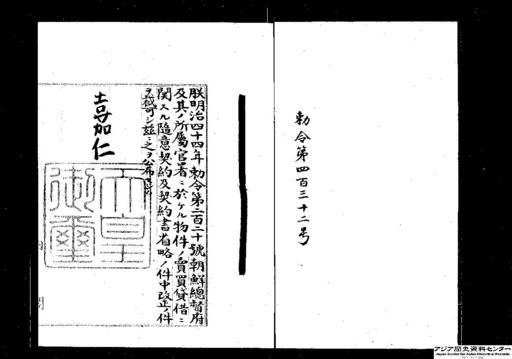 勅令第四百三十二号
朕明治四十四年勅令第三百二十號朝鮮總督府
及其ノ所屬官署ニ於ケル物件ノ賣買貸借ニ
関スル隨意契約及契約書省略ノ件中改正ノ件
ヲ裁可シ茲ニ之ヲ公布セシム
嘉仁
天皇
御璽
アジア歴史資料センター
Japan Center for Asian Historical Records